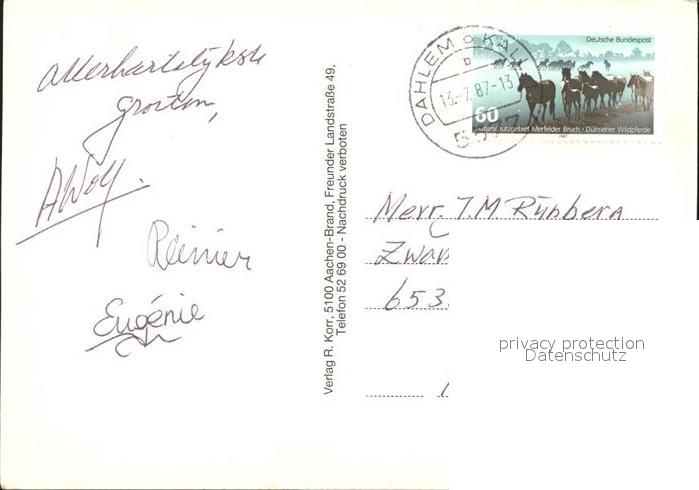 allerhartelijkste
groeten,
AWolf.
Reinier
Eugénie
Verlag R. Korr, 5100 Aachen-Brand, Freunder Landstraße 49,
Telefon 52 69 00 - Nachdruck verboten
DAHLEM KALL
b
13.-7.87-13
Deutsche Bundespost
60
Naturschutzgebiet Merfelder Bruch · Dülmener Wildpferde
1987
J.M.
653
privacy protection
Datenschutz